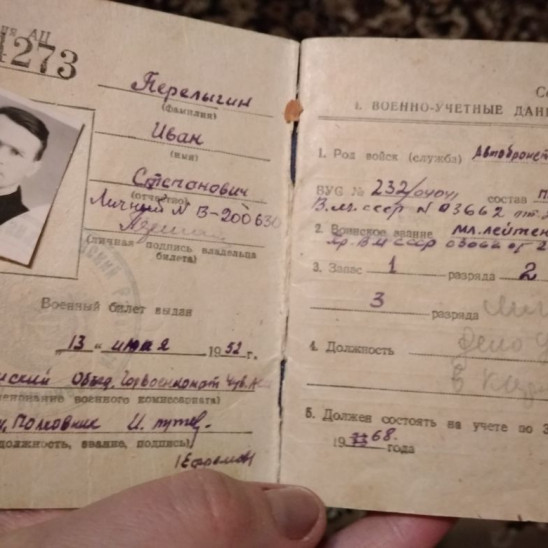 АЦ
273
Перелыгин
(фамилия)
Иван
(имя)
Степанович
(отчество)
Личный N В-200630
(личная подпись владельца
билета)
Военный билет выдан
13 " июня 1952 г.
Объед. Горвоенкомат
военного комиссариата)
Полковник И.
должность, звание, подпись)
1. ВОЕННО-УЧЕТНЫЕ ДАН
1. Род войск (служба) Автобронет
ВУС № 232/0404, состав
В.М. СССР N 03662 от
2. Воинское звание мл. лейтен
Пр. ВМ СССР 03062 от 2
3. Запас 1 разряда 2
3 разряда
Дело
4. Должность
5. Должен состоять на учете по
1968. года